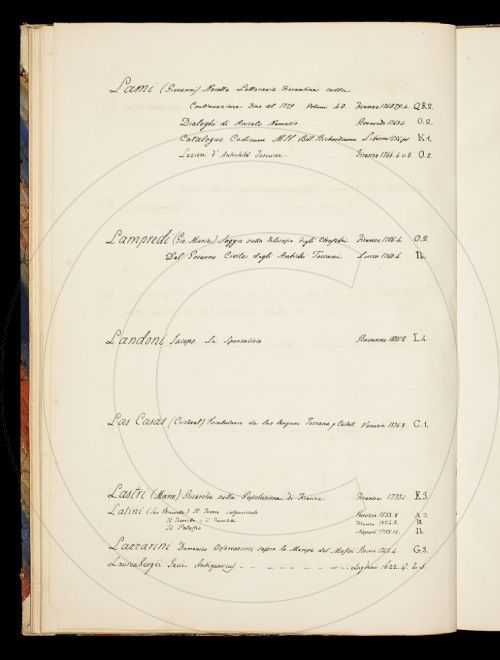 Lami (Giovanni) Novelle Letterarie Fiorentine colla
Continuazione fino al 1779 Volumi 40. Firenze Q.R.2.
Dialoghi di Aniceto Nemesio O.2.
Catalogus Codicum MSS. Bibl. Riccardianae Liburni K.1.
Lezioni d'Antichità Toscane. Firenze 1766. 4. O.2.
Lampredi (Gio. Maria) Saggio sulla Filosofia degli Etruschi Firenze 4. O.2.
Del Governo Civile degli Antichi Toscani Lucca 1760. 4. Ib.
Landoni Jacopo Ravenna L.4.
Las Casas (Cristoval) Vocabulario de las lenguas Toscana y Castell. Venezia C.1.
Lastri (Marco) Ricerche sulla Popolazione di Firenze Firenze E.3.
Latini (Ser Brunetto) Il Tesoro Venezia 1533. 8 A.3.
Il Tesoretto Firenze 1824. 8. Ib
Il Pataffio Napoli 1788. 12. Ib.
Lazzarini Domenico Osservazioni sopra la Merope del Maffei Roma 1743. 4. G.3.
Laurenbergii Jani Antiquarius 1622. 4°. L.5.